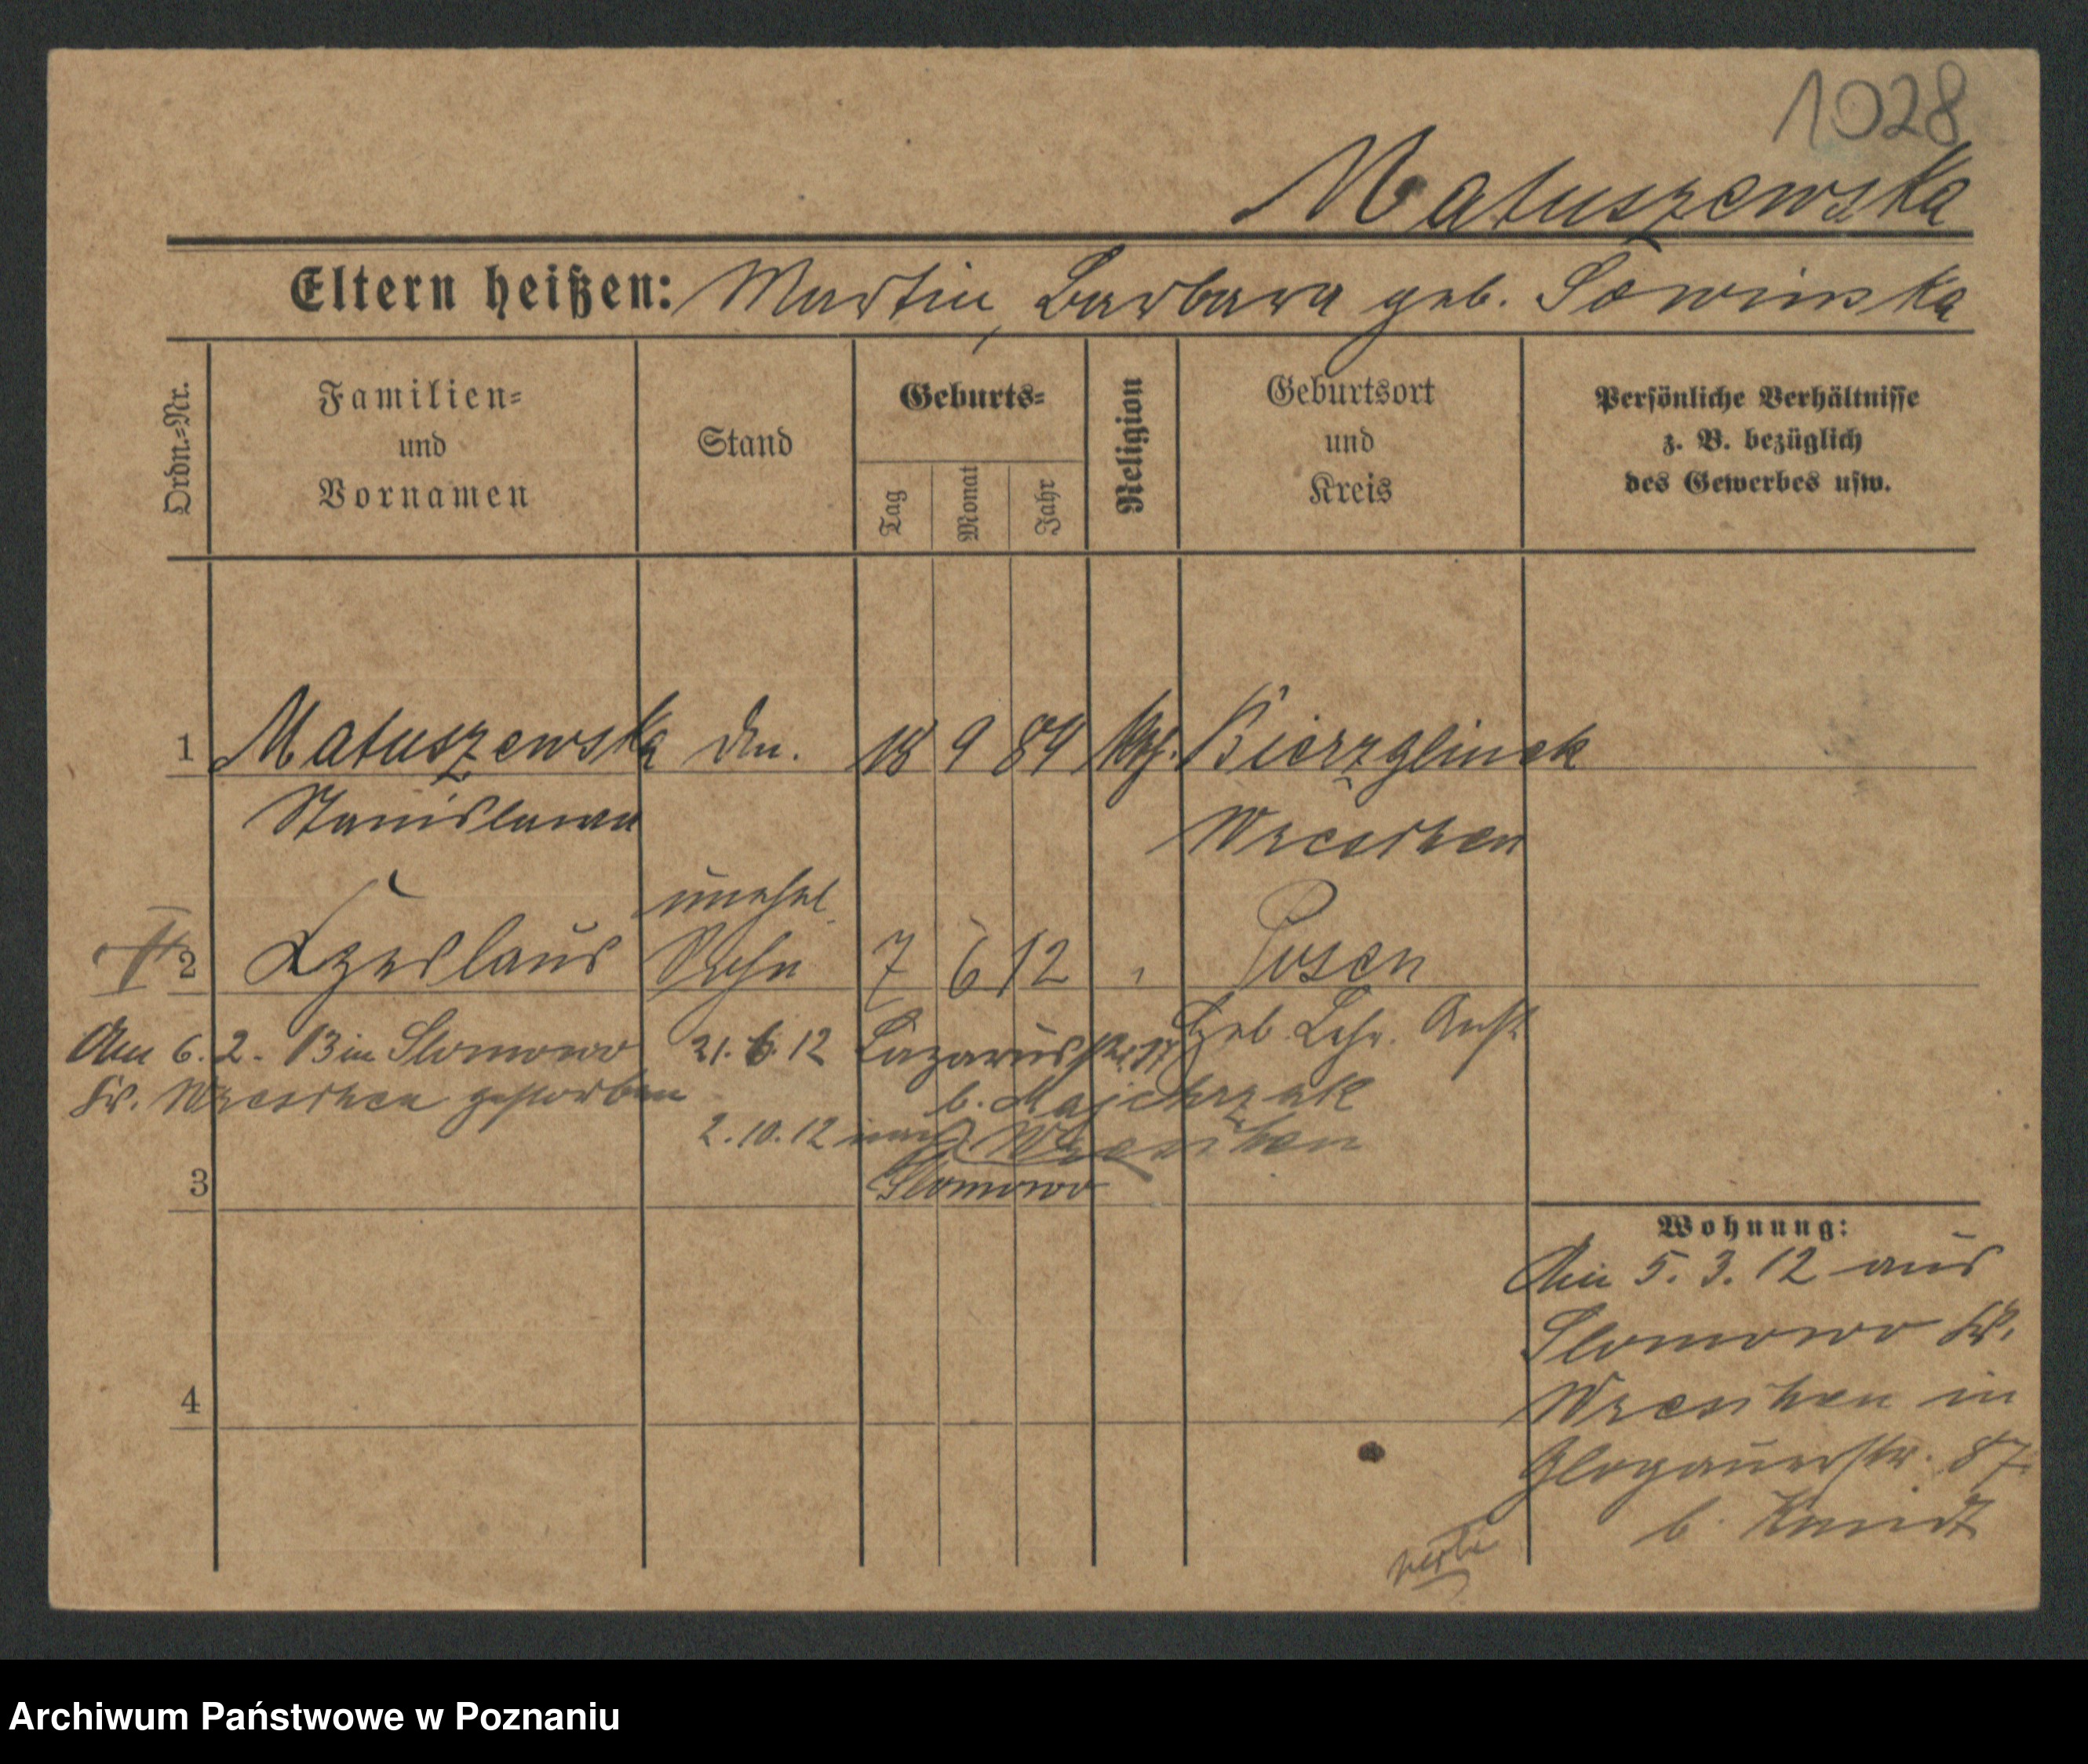 1028
Matuszewska
Eltern heißen: Martin, Barbara geb. Sowinska
Ordn.=Nr.
Familien=
und
Vornamen
Stand
Geburts=
Tag
Monat
Jahr
Religion
Geburtsort
und
Kreis
Persönliche Verhältnisse
z. B. bezüglich
des Gewerbes usw.
1 Matuszewska 18 9 89 kth. Bierzglinek
Stanislawa Wreschen
unehel.
2 Czeslaus Sohn 7 6 12 " Posen
Heb. Lehr. Anst.
Am 6. 2. 13 in Slomowo
Kr. Wreschen gestorben
21. 6. 12 Lazarusstr. 17
b. Majchrzak
2. 10. 12 nach Wreschen
Slomowo
3
4
Wohnung:
Am 5. 3. 12 aus
Slomowo Kr.
Wreschen in
Glogauerstr. 87
b.
Archiwum Państwowe w Poznaniu